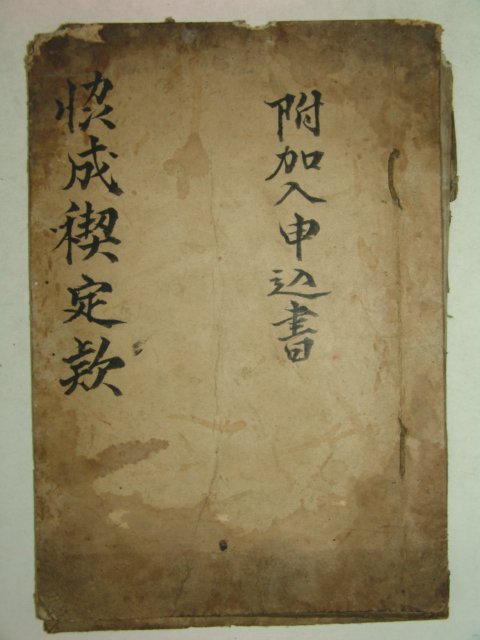 附加入申込書
恊成稧定款